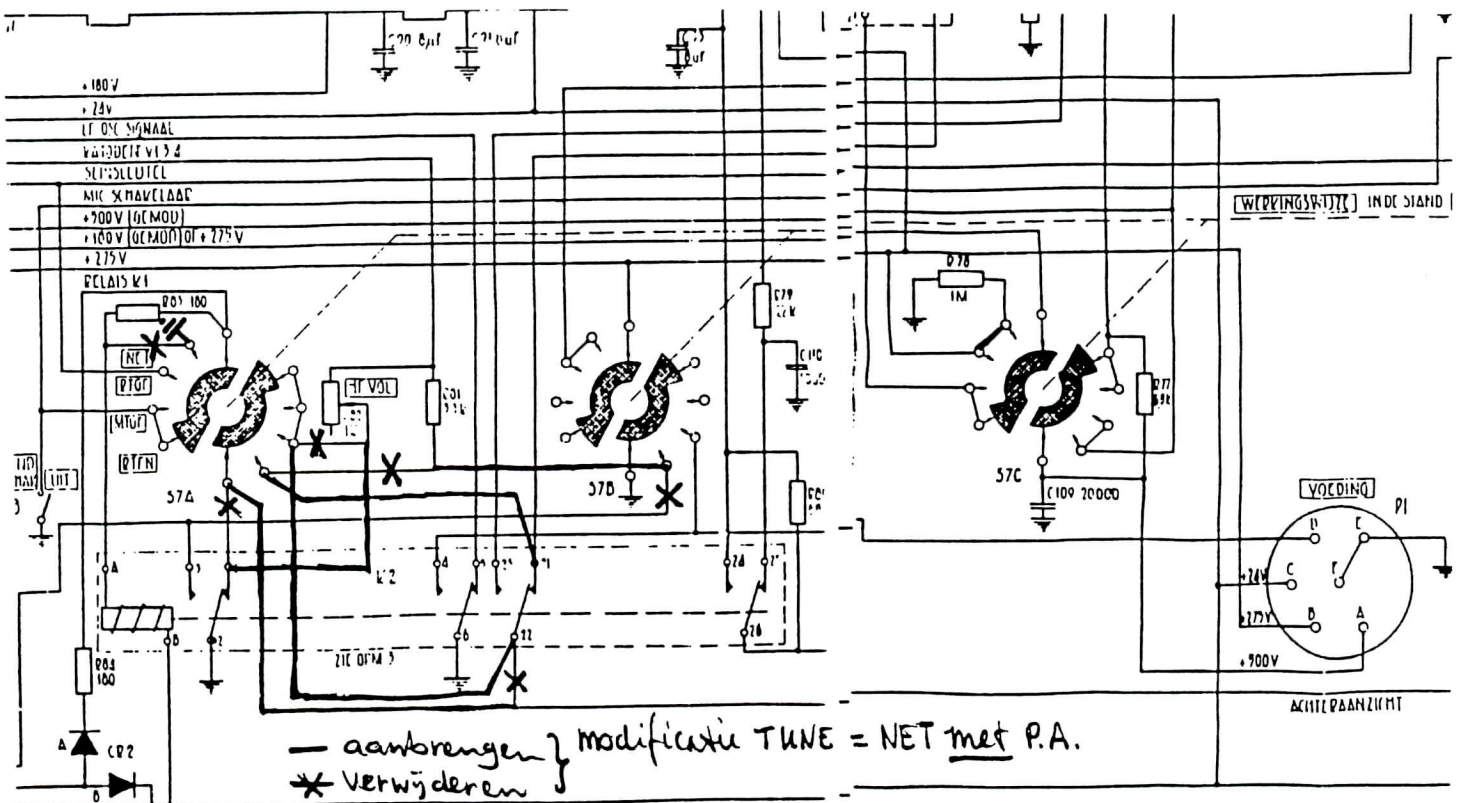 +180V
+24V
LF OSC SIGNAAL
SEINSLEUTEL
MIC SCHAKELAAR
+900V [GEMOD]
+180V [GEMOD] OF +275V
+275V
RELAIS K1
R83 180
NET
RTGF
MTGF
RTFN
UIT
HF VOL
R81
S7A
R79
22K
S7B
A
3
K2
4
5
23
21
24
B
2
6
22
26
ZIE OPM 5
R84
180
A
CR2
B
WERKINGSWIJZE IN DE STAND
R78
1M
R77
S7C
C109 20000
VOEDING
P1
D
E
C
F
B
A
+24V
+275V
+900V
ACHTERAANZICHT
aanbrengen } modificatie TUNE = NET met P.A.
verwijderen